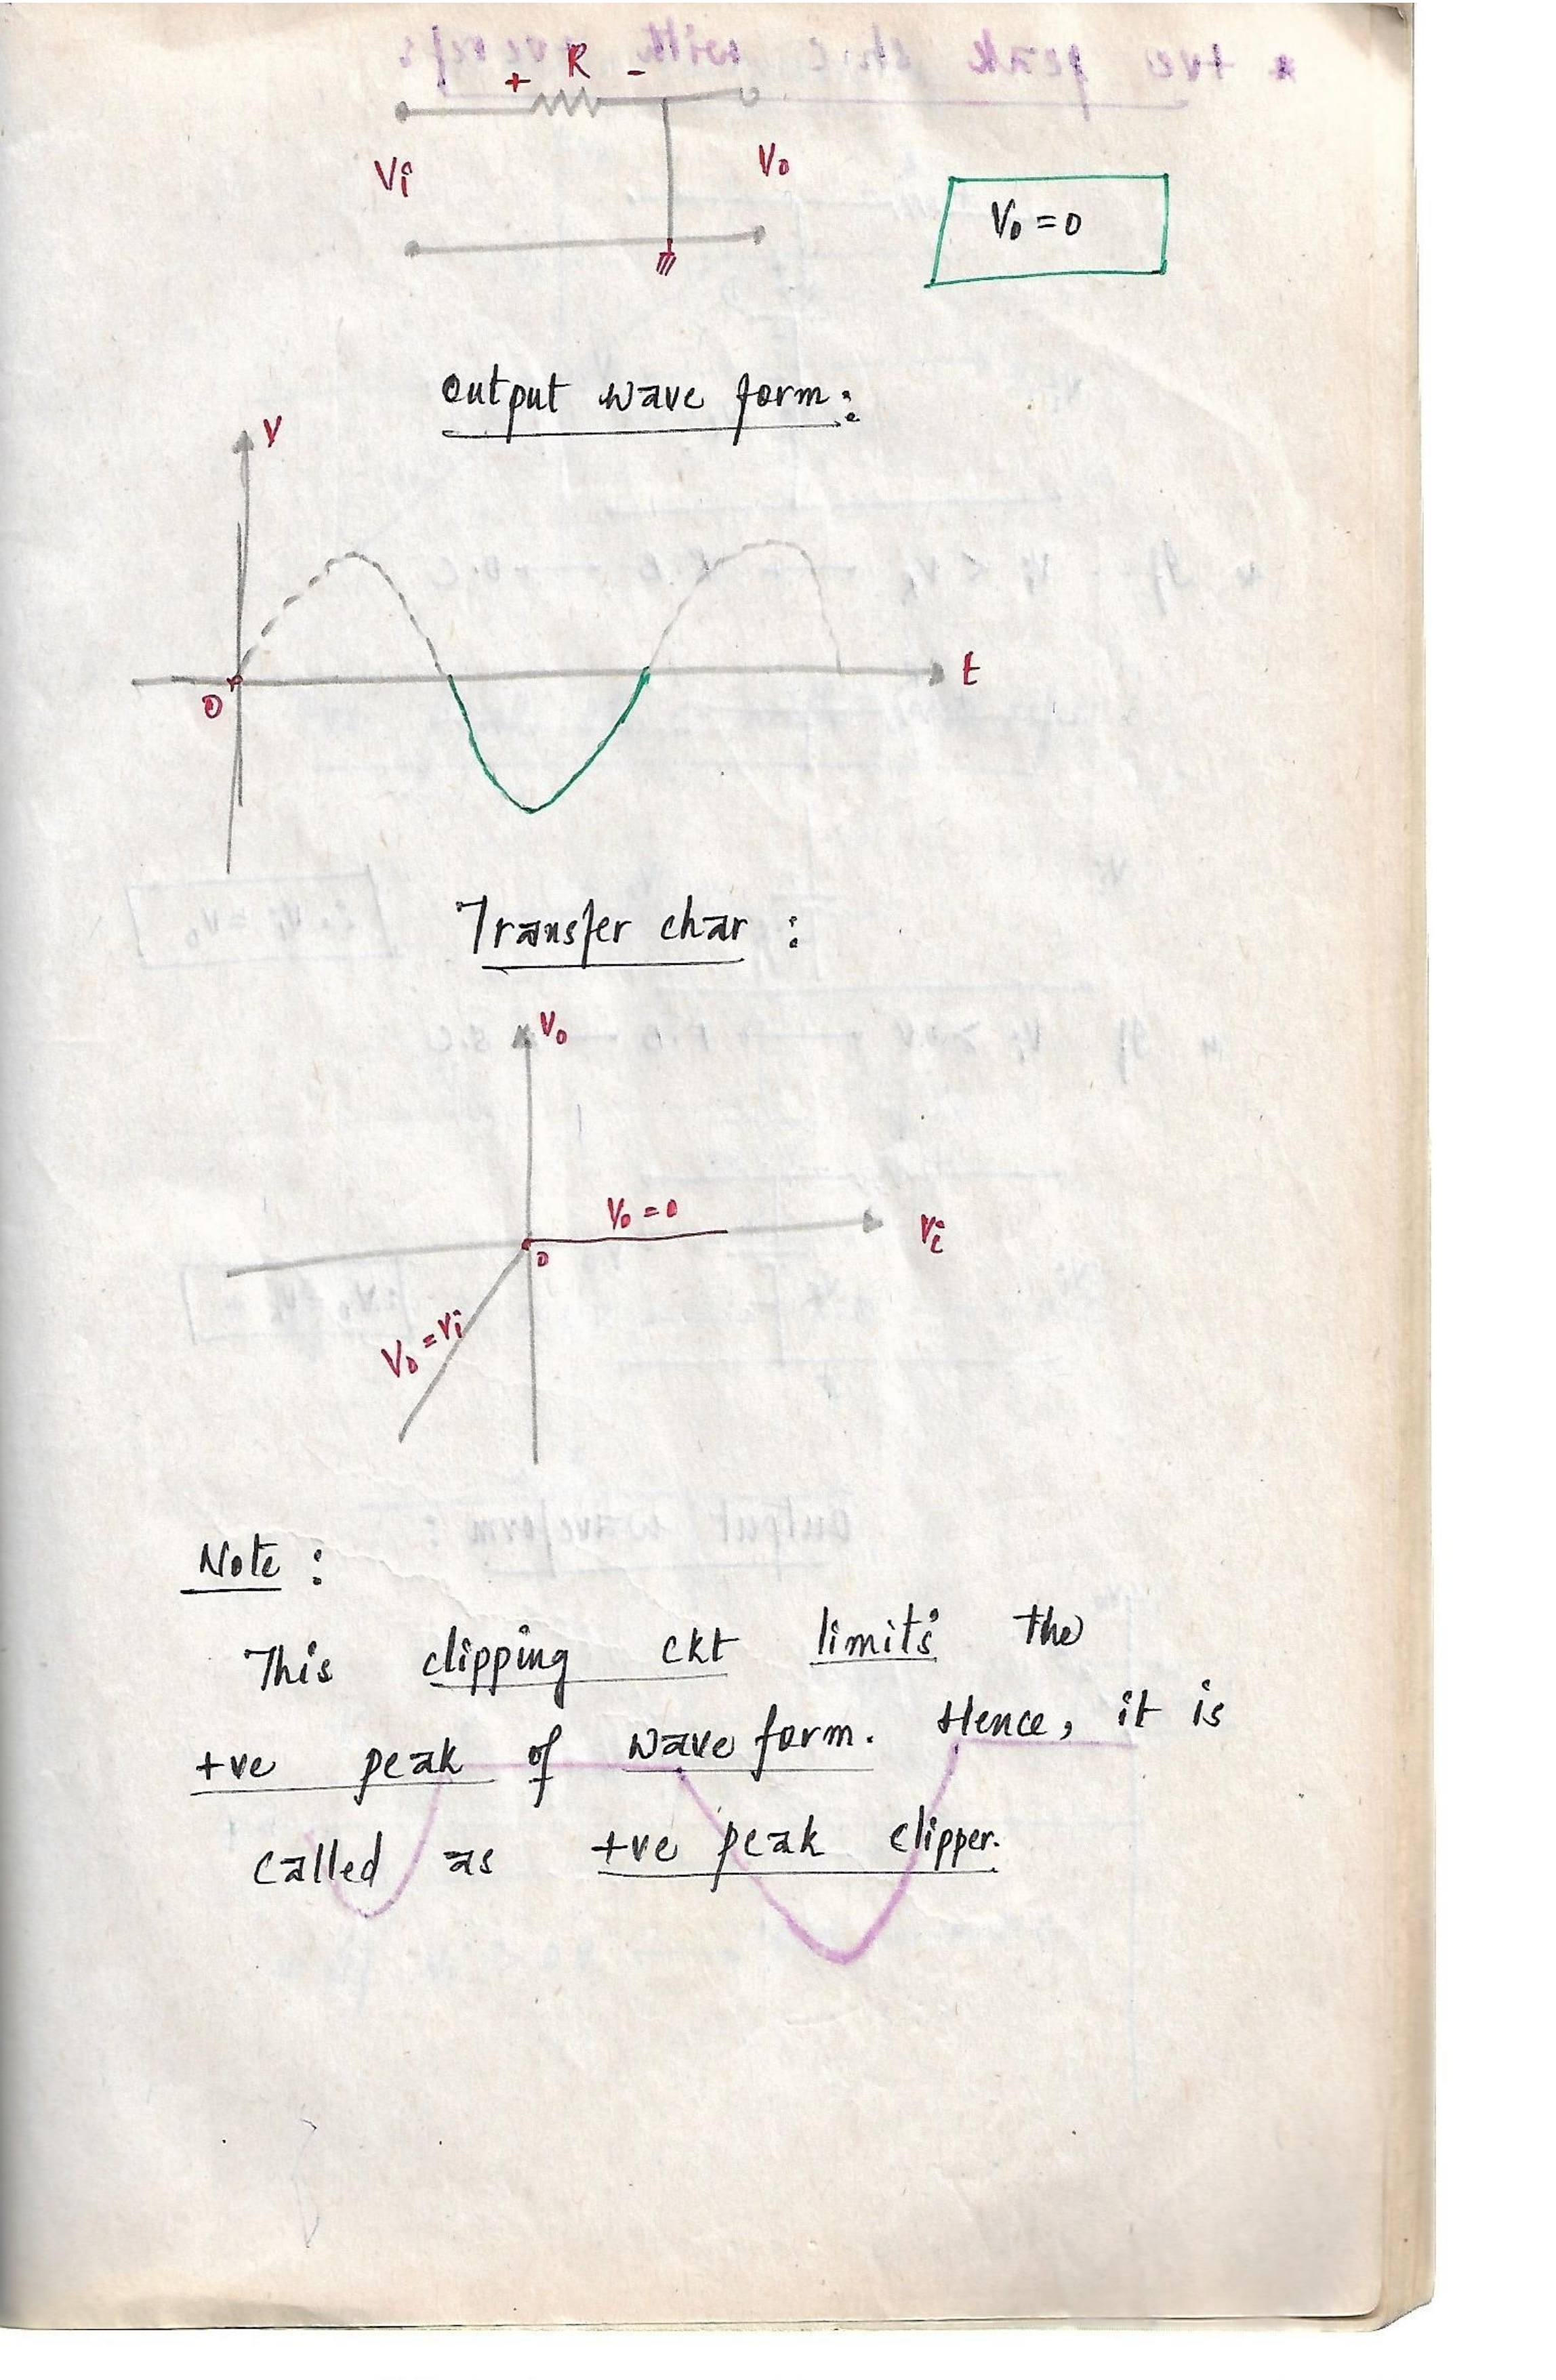 + R -
Vi
Vo
Vo = 0
output wave form:
V
t
0
Transfer char :
Vo
Vo = 0
Vi
0
Vo = Vi
Note :
This clipping ckt limits the
+ve peak of wave form. Hence, it is
called as +ve peak clipper.